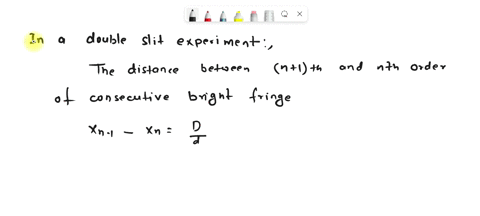 In a double slit experiment:,
The distance between (n+1)th and nth order
of consecutive bright fringe
xₙ₋₁ - xₙ = D/d